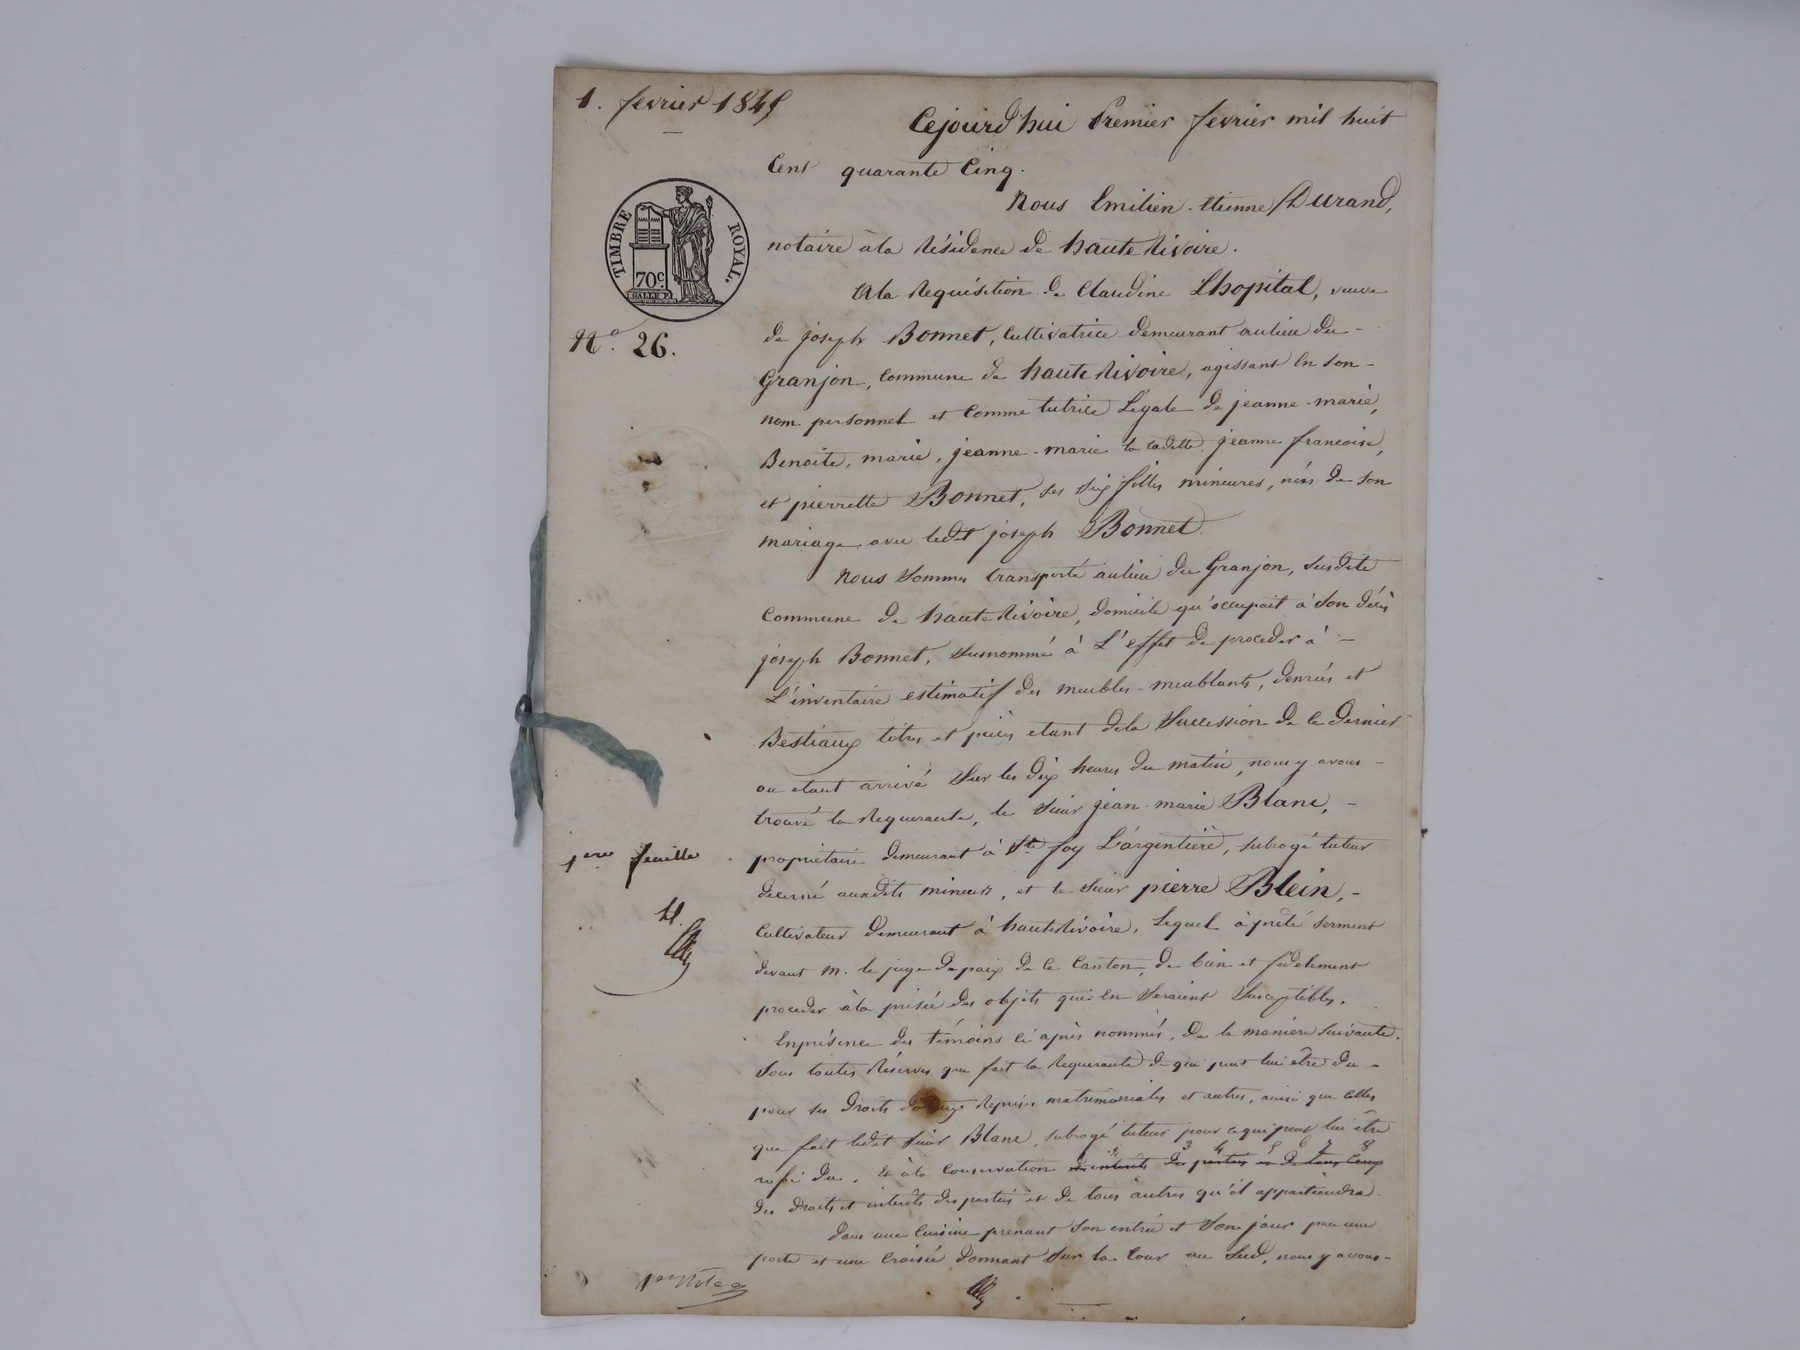 1. fevrier 1845
Cejourd'hui Premier fevrier mil huit
Cent quarante Cinq.
Nous Emilien-Etienne Durand,
notaire à la Résidence de haute Rivoire.
TIMBRE ROYAL.
70c
A la Requisition de Claudine Lhopital, veuve
N° 26.
de joseph Bonnet, Cultivatrice demeurant au lieu du -
Granjon, Commune de haute Rivoire, agissant En Son -
nom personnel et Comme tutrice Légale de jeanne-marie,
Benoite, marie, jeanne-marie la cadette, jeanne francoise,
et pierrette Bonnet, ses Six filles mineures, nées de Son
mariage avec ledit joseph Bonnet.
Nous Sommes transporté au lieu du Granjon, susdite
Commune de haute Rivoire, domicile qu'occupait à Son décès
joseph Bonnet, Susnommé à L'effet de proceder à -
L'inventaire estimatif des meubles-meublants, denrées et
Bestiaux titres et pièces etant de la Succession de ce dernier
ou etant arrivé Sur les dix heures du matin, nous y avons -
trouvé la Requerante, le Sieur jean-marie Blanc, -
1ere feuille
propriétaire demeurant à Ste foy L'argentière, subrogé tuteur
decerné auxdits mineurs, et le Sieur pierre Blein, -
Cultivateur demeurant à haute Rivoire, Lequel à prêté serment
devant M. le juge de paix de ce Canton, de bien et fidelement
proceder à la prisée des objets qui En Seraient Susceptibles.
En présence des témoins ci après nommés, de la manière Suivante.
Sous toutes Réserves que fait la Requerante de qui peut lui être du -
pour ses droits Reprises matrimoniales et autres, ainsi que Celles
que fait ledit Sieur Blanc, subrogé tuteur pour ce qui peut lui être
du. Et à la Conservation des interêts des parties et de tous Ceux
3 4 5 6 7 8
des droits et interêts des parties et de tous autres qu'il appartiendra.
dans une Cuisine prenant Son entrée et Son jour par une
porte et une Croisée donnant Sur la Cour au Sud, nous y avons -